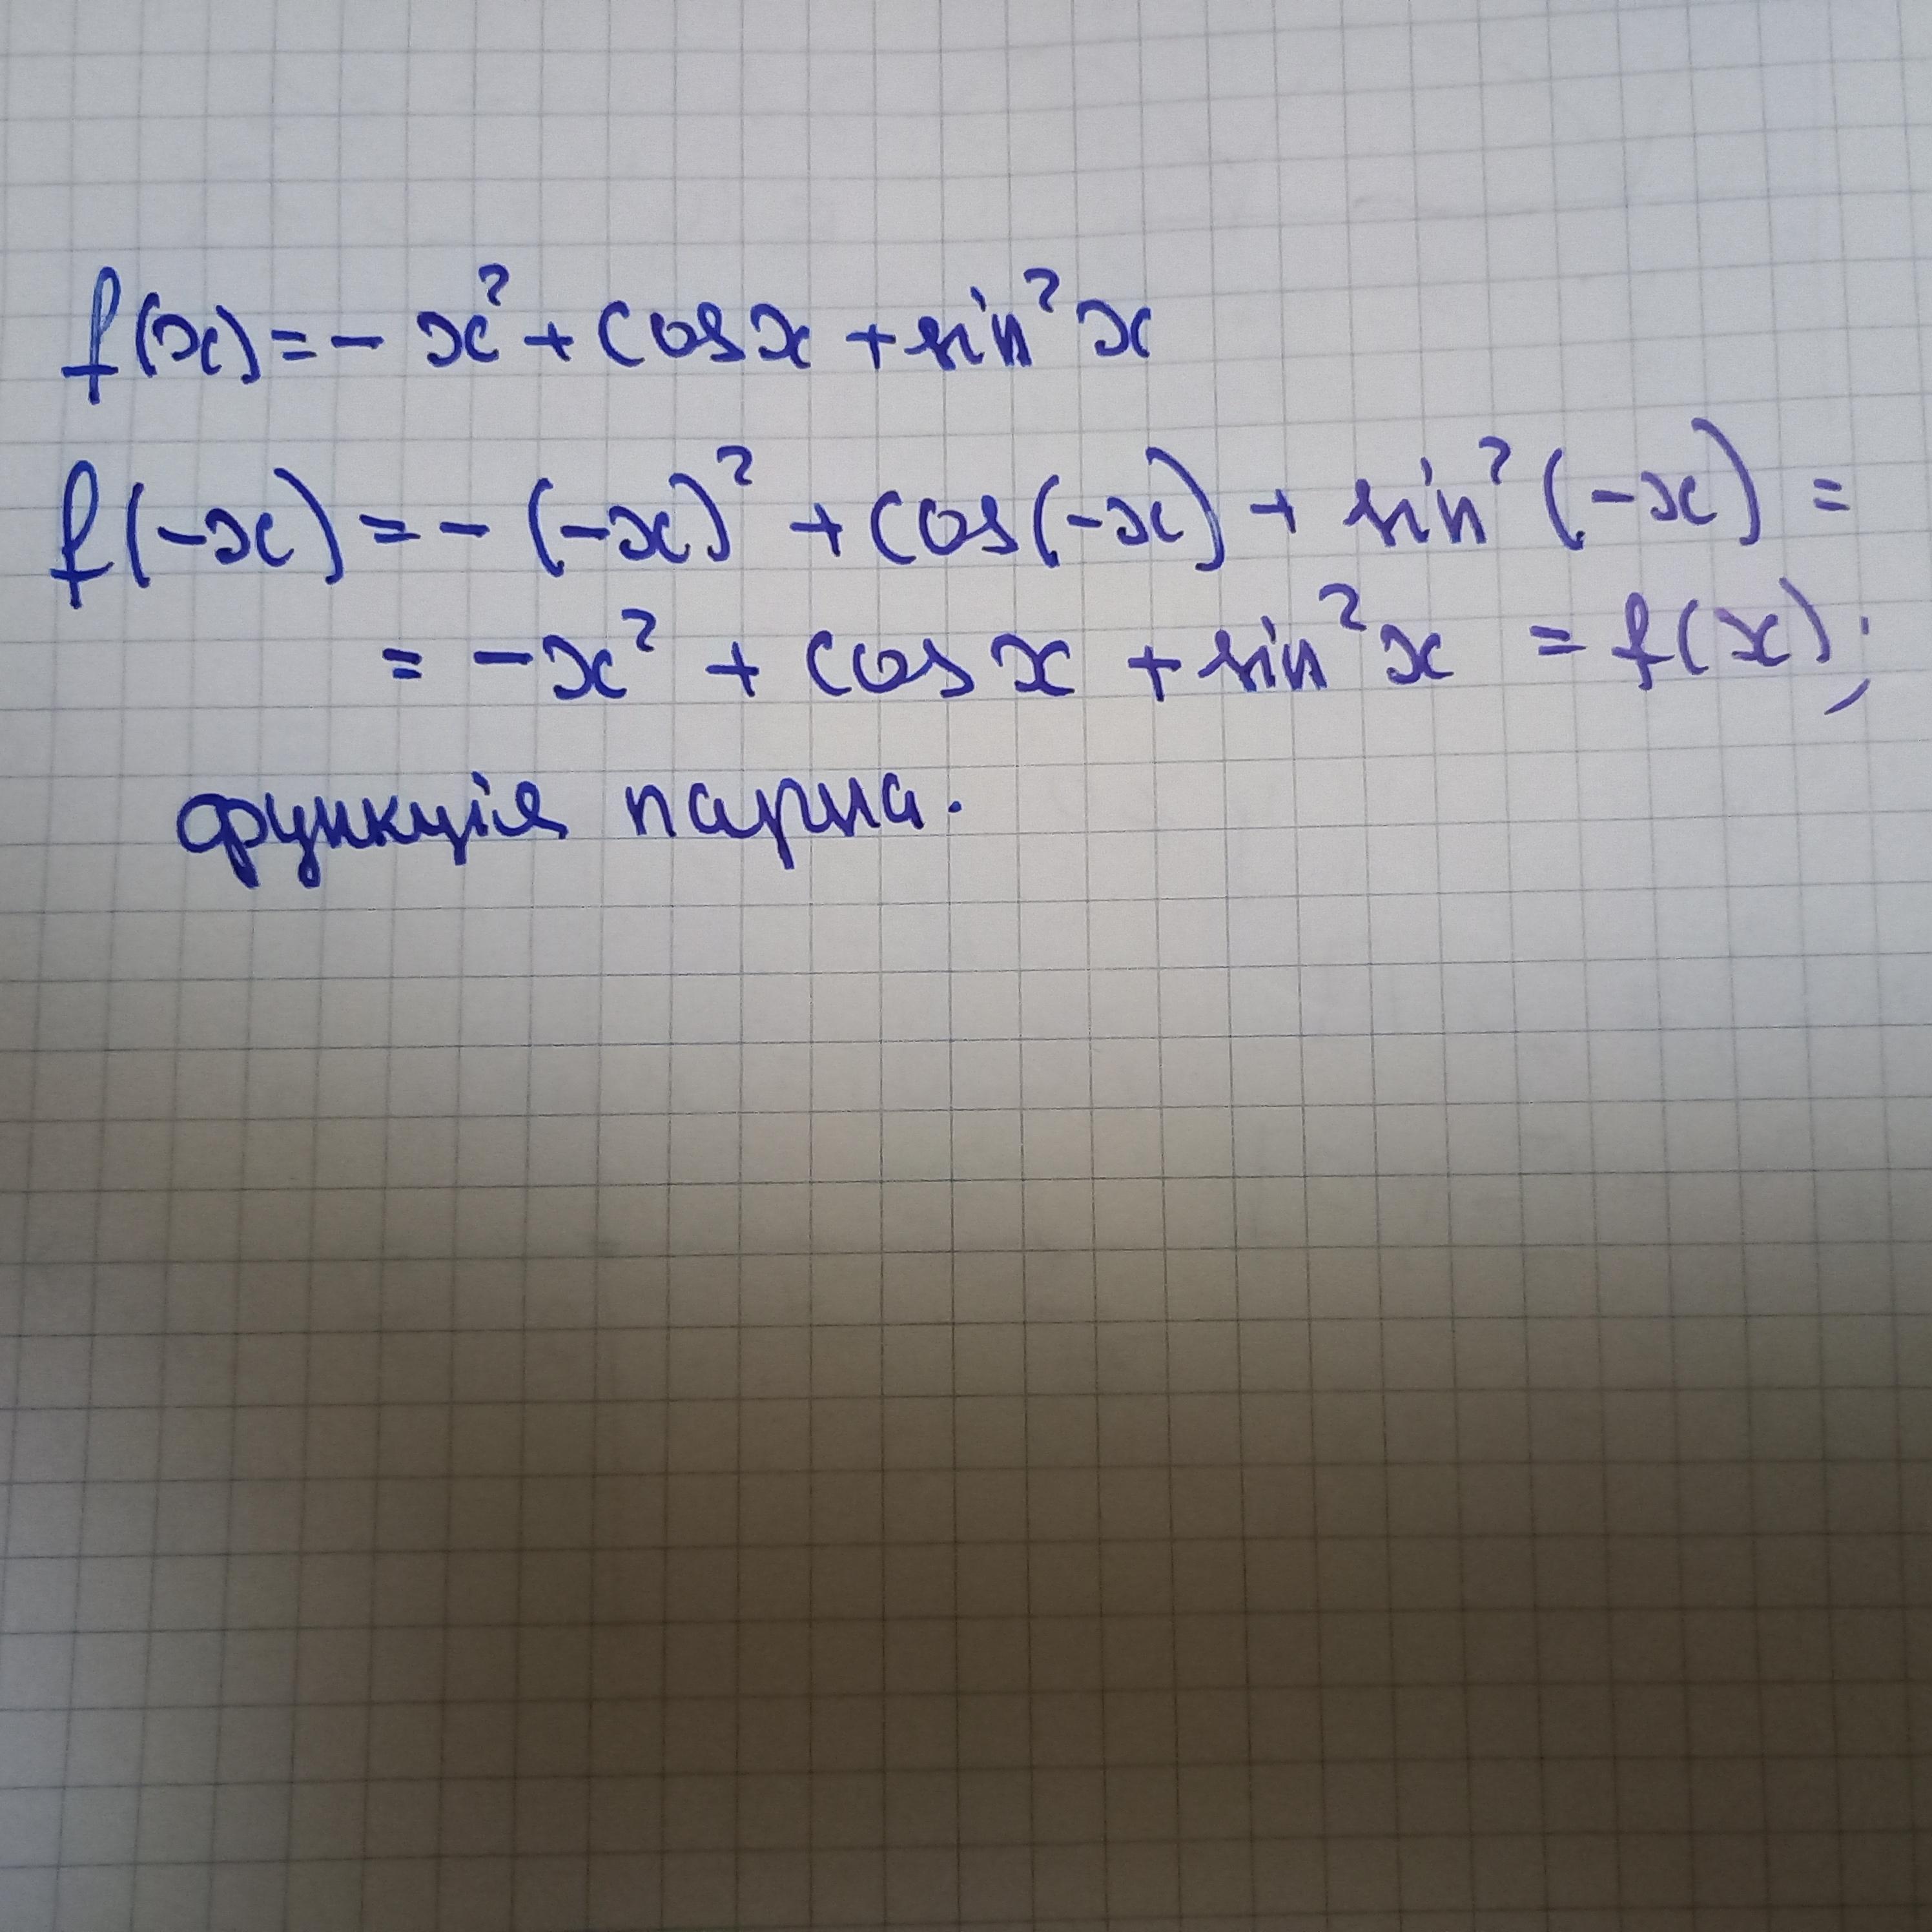 f(x) = - x² + cos x + sin² x
f(-x) = - (-x)² + cos(-x) + sin² (-x) =
= -x² + cos x + sin² x = f(x);
функція парна.